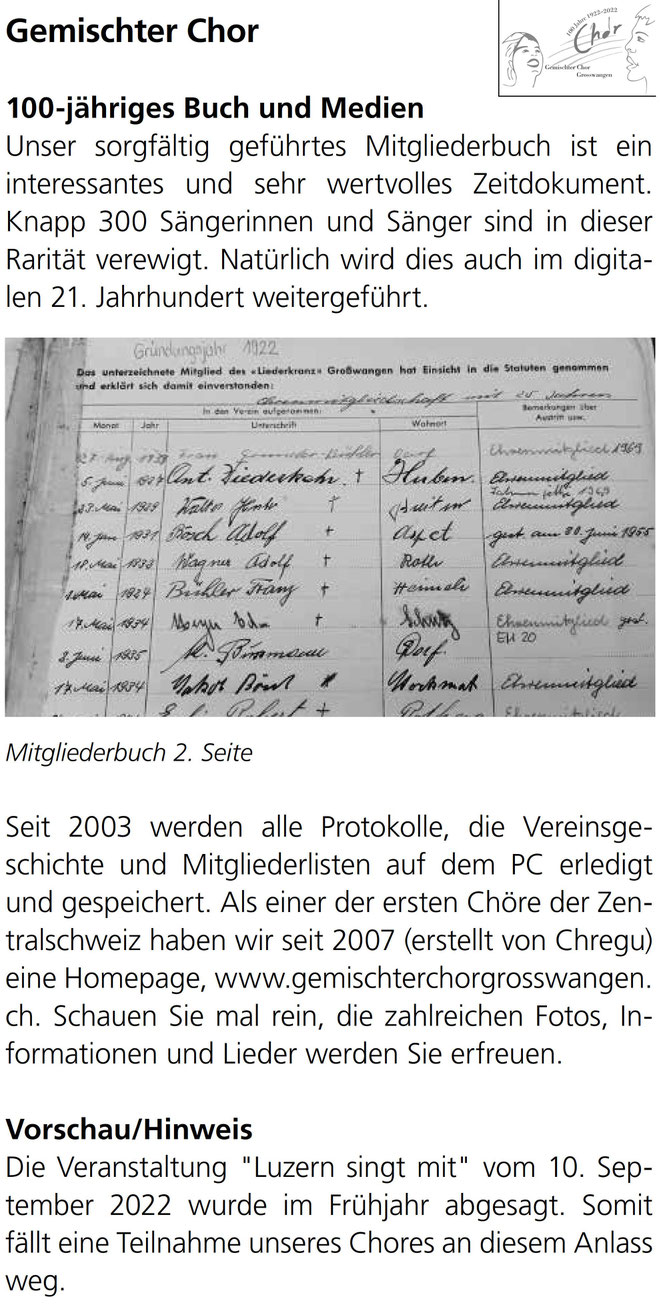 Gemischter Chor
100 Jahre 1922-2022
Chor
Gemischter Chor
Grosswangen
100-jähriges Buch und Medien
Unser sorgfältig geführtes Mitgliederbuch ist ein
interessantes und sehr wertvolles Zeitdokument.
Knapp 300 Sängerinnen und Sänger sind in dieser
Rarität verewigt. Natürlich wird dies auch im digita-
len 21. Jahrhundert weitergeführt.
Gründungsjahr 1922
Das unterzeichnete Mitglied des «Liederkranz» Großwangen hat Einsicht in die Statuten genommen
und erklärt sich damit einverstanden:
Ehrenmitgliedschaft mit 25 Jahren
In den Verein aufgenommen: Bemerkungen über
Monat Jahr Unterschrift Wohnort Austritt usw.
27. Aug. Dorf Ehrenmitglied 1969
5. Juni 1927 Ant. Niederkehr † Huben Ehrenmitglied
23. Mai 1929 Walter † Ehrenmitglied
14. Jan 1931 Bösch Adolf † gest. am 30. Juni 1955
18. Mai 1933 Wagner Adolf † Roth Ehrenmitglied
Mai 1934 Bühler Franz † Heimeli Ehrenmitglied
17. Mai 1934 † Schutz Ehrenmitglied gest.
EH 20
3. Juni 1935 Dorf.
17. Mai 1934 Ehrenmitglied
Ehrenmitglied
Mitgliederbuch 2. Seite
Seit 2003 werden alle Protokolle, die Vereinsge-
schichte und Mitgliederlisten auf dem PC erledigt
und gespeichert. Als einer der ersten Chöre der Zen-
tralschweiz haben wir seit 2007 (erstellt von Chregu)
eine Homepage, www.gemischterchorgrosswangen.
ch. Schauen Sie mal rein, die zahlreichen Fotos, In-
formationen und Lieder werden Sie erfreuen.
Vorschau/Hinweis
Die Veranstaltung "Luzern singt mit" vom 10. Sep-
tember 2022 wurde im Frühjahr abgesagt. Somit
fällt eine Teilnahme unseres Chores an diesem Anlass
weg.